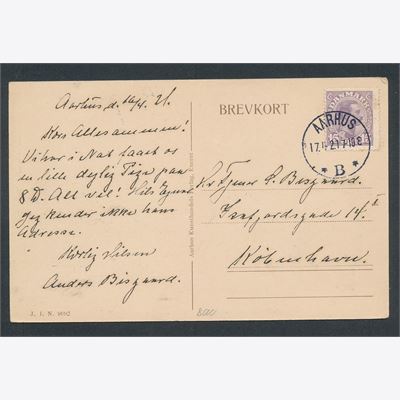 Aarhus d. 16/4. 21.
Kors Allesammen!
Vi har i Nat faaet os
en lille dejlig Pige paa
8 D. Alt vel! Hils Ejnar
jeg kender ikke hans
Adresse.
Kærlig Hilsen
Anders Bisgaard.
J. J. N. 9692
Aarhus Kunsthandels Forlag, Eneret
BREVKORT
DANMARK
15
AARHUS
17.4.21.7-10 E
* B *
Hr. Tjener S. Bisgaard.
14. I
København.